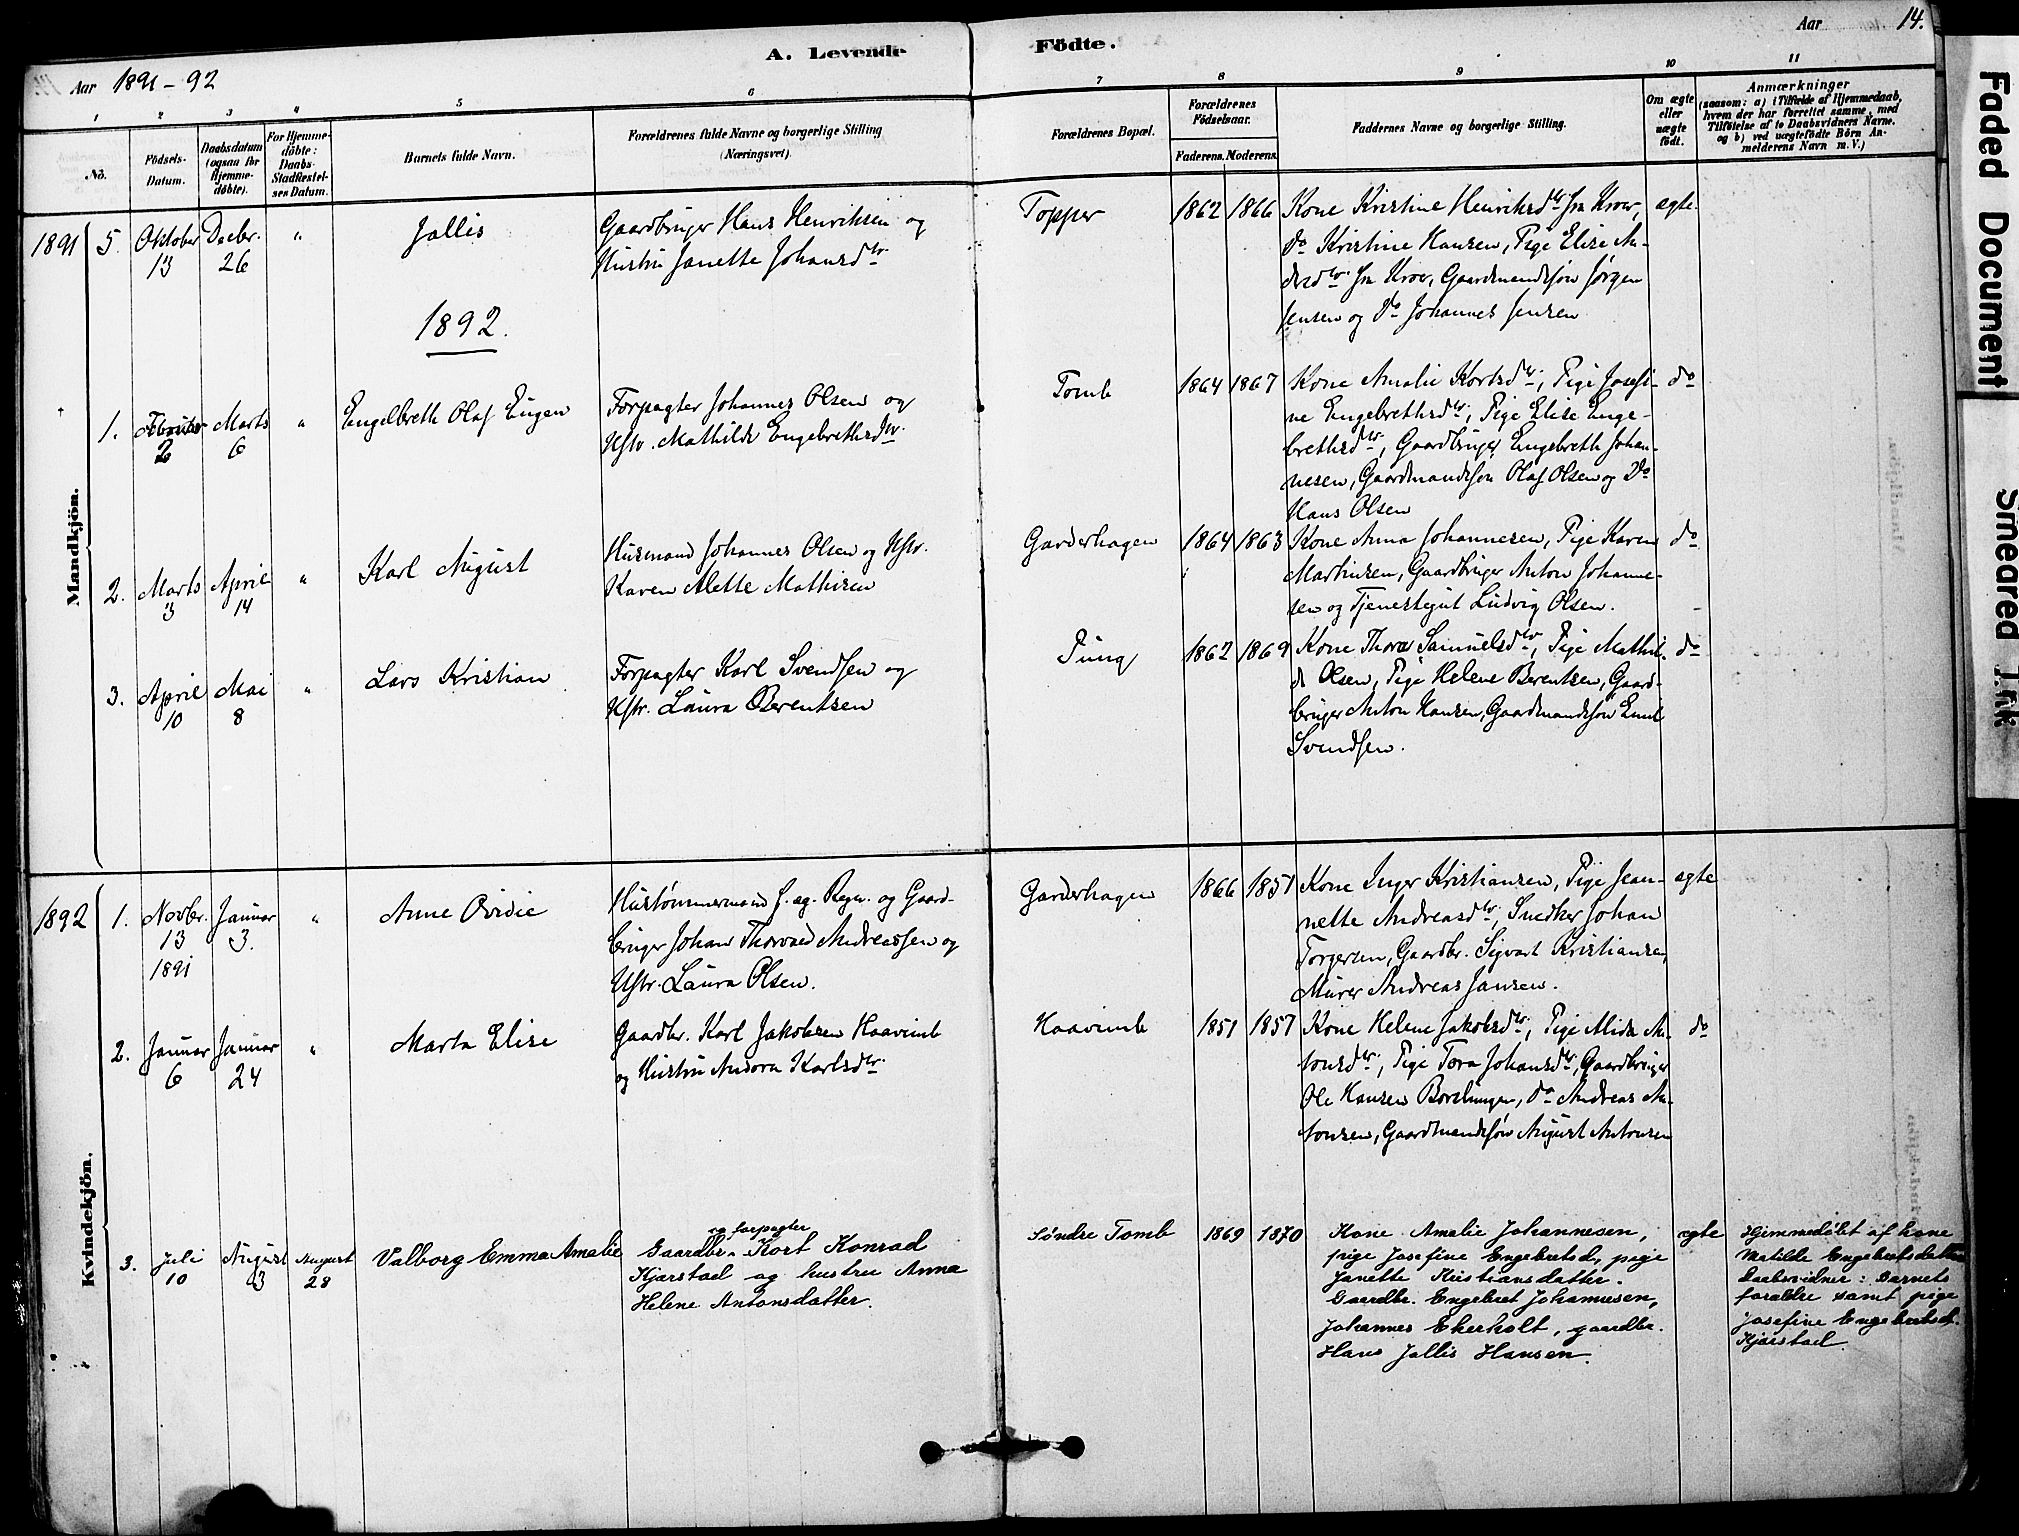 A. Levende Födte.
Aar 1891-92
Aar 14.
1 2 3 4 5 6 7 8 9 10 11
No.
Födsels-Datum.
Daabsdatum (ogsaa for Hjemme-döbte).
For Hjemme-döbte: Daabs-Stadfæstel-ses Datum.
Barnets fulde Navn.
Forældrenes fulde Navne og borgerlige Stilling
(Næringsvei).
Forældrenes Bopæl.
Forældrenes Födselsaar.
Faderens. Moderens.
Faddernes Navne og borgerlige Stilling.
Om ægte eller uægte födt.
Anmærkninger
(saasom: a) i Tilfælde af Hjemmedaab,
hvem der har forrettet samme, med
Tilföielse af to Daabsvidners Navne.
og b) ved uægtefödte Börn An-
melderens Navn m. V.)
Mandkjön.
1891 5. Oktober 13 Decbr. 26 " Jallis
Gaardbruger Hans Henriksen og
Hustru Janette Johansdtr
Topper 1862 1866
Kone Kristine Henriksdtr fra Kroer,
do Kristine Hansen, Pige Elise An-
dersdtr fra Kroer, Gaardmandssøn Jørgen
Jensen og Do Johannes Jensen
ægte.
1892.
1. Februar 2 Marts 6 " Engelbreth Olaf Eugen
Forpagter Johannes Olsen og
Hstr. Mathilde Engebrethsdtr.
Tomb 1864 1867
Kone Amalie Kortsdtr, Pige Josefi-
ne Engebrethsdtr, Pige Elise Enge-
brethsdtr, Gaardbruger Engebreth Johan-
nesen, Gaardmandssøn Olaf Olsen og Do
Hans Olsen
do
2. Marts 3 April 14 " Karl August
Husmand Johannes Olsen og Hstr.
Karen Alette Mathisen
Garderhagen 1864 1863
Kone Anna Johannesen, Pige Karen
Martinsen, Gaardbruger Anton Johanne-
sen og Tjenestegut Ludvig Olsen.
do
3. April 10 Mai 8 " Lars Kristian
Forpagter Karl Svendsen og
Hstr. Laura Berentsen
Pung 1862 1869
Kone Thora Samuelsdtr, Pige Mathil-
de Olsen, Pige Helene Berentsen, Gaard-
bruger Anton Hansen, Gaardmandssøn Emil
Svendsen.
do
Kvindekjön.
1892 1. Novbr. 13 1891 Januar 3. " Anne Ovidie
Hustømmermand f. og Gaard-
bruger Johan Thorvald Andreassen og
Hstr. Laura Olsen.
Garderhagen 1866 1851
Kone Inger Kristiansen, Pige Jean-
nette Andreasdtr, Snedker Johan
Torgersen, Gaardbr. Sigvart Kristiansen,
Murer Andreas Jansen.
ægte
2. Januar 6 Januar 24 " Marta Elise
Gaardbr. Karl Jakobsen Haavimb
og Hustru Andora Karlsdtr
Haavimb 1851 1857
Kone Helene Jakobsdtr, Pige Alida An-
tonsdtr, Pige Tora Johansdtr, Gaardbruger
Ole Hansen, do Andreas An-
tonsen, Gaardmandssøn August Antonsen
do
3. Juli 10 August 3 August 28 Valborg Emma Amalie
og forpagter
Gaardbr. Kort Konrad
Kjærstad og hustru Anna
Helene Antonsdatter.
Søndre Tomb 1869 1870
Kone Amalie Johannesen,
pige Josefine Engebretsd, pige
Janette Kristiansdatter.
Gaardbr. Engebret Johannesen,
Johannes Ekerholt, gaardbr.
Hans Jallis Hansen.
ægte
Hjemmedøbt af kone
Matilde Engebretsdatter
Daabsvidner: Barnets
forældre samt pige
Josefine Engebretsdt.
Kjærstad.
Faded Document
Smeared Ink